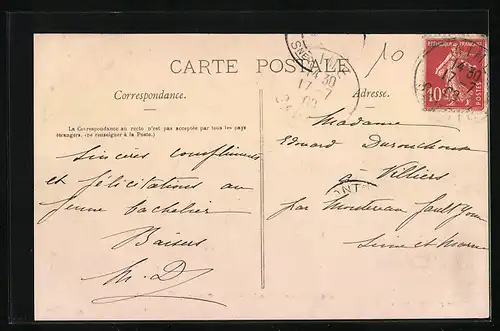 CARTE POSTALE
10
RÉPUBLIQUE FRANÇAISE
10c
POSTES
14 30
17 - 7
09
Correspondance.
Adresse.
La Correspondance au recto n'est pas acceptée par tous les pays
étrangers. (Se renseigner à la Poste.)
Sincères compliments
et félicitations au
jeune bachelier
Baisers
M. D
Madame
Edouard
à Villiers
par Montereau fault Yonne
Seine et Marne